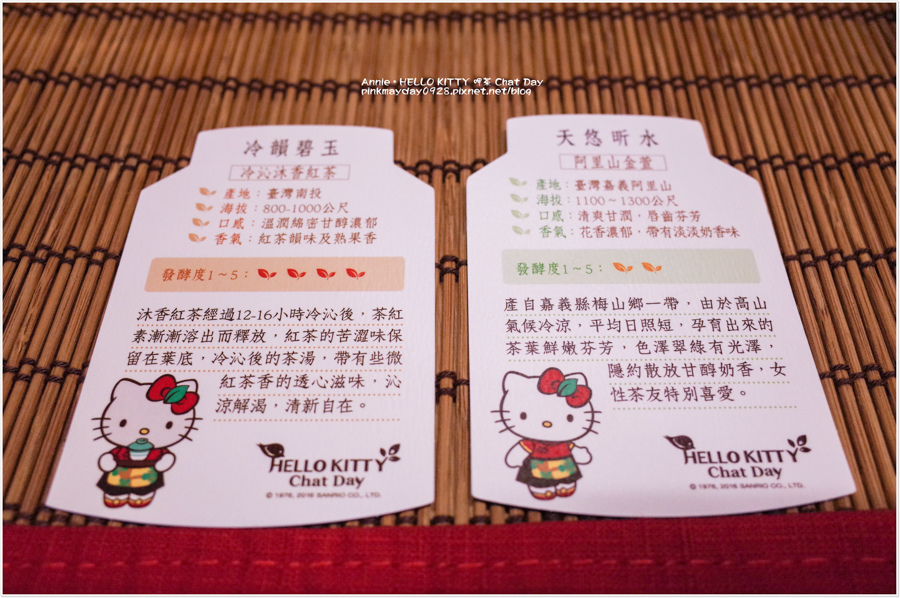 Annie。HELLO KITTY 呷茶 Chat Day
pinkmayday0928.pixnet.net/blog
冷韻碧玉
冷沁沐香紅茶
產地：臺灣南投
海拔：800-1000公尺
口感：溫潤綿密甘醇濃郁
香氣：紅茶韻味及熟果香
發酵度1～5：
沐香紅茶經過12-16小時冷沁後，茶紅
素漸漸溶出而釋放，紅茶的苦澀味保
留在葉底，冷沁後的茶湯，帶有些微
紅茶香的透心滋味，沁
涼解渴，清新自在。
HELLO KITTY
Chat Day
© 1976, 2016 SANRIO CO., LTD.
天悠昕水
阿里山金萱
產地：臺灣嘉義阿里山
海拔：1100～1300公尺
口感：清爽甘潤，唇齒芬芳
香氣：花香濃郁，帶有淡淡奶香味
發酵度1～5：
產自嘉義縣梅山鄉一帶，由於高山
氣候冷涼，平均日照短，孕育出來的
茶葉鮮嫩芬芳，色澤翠綠有光澤，
隱約散放甘醇奶香，女
性茶友特別喜愛。
HELLO KITTY
Chat Day
© 1976, 2016 SANRIO CO., LTD.